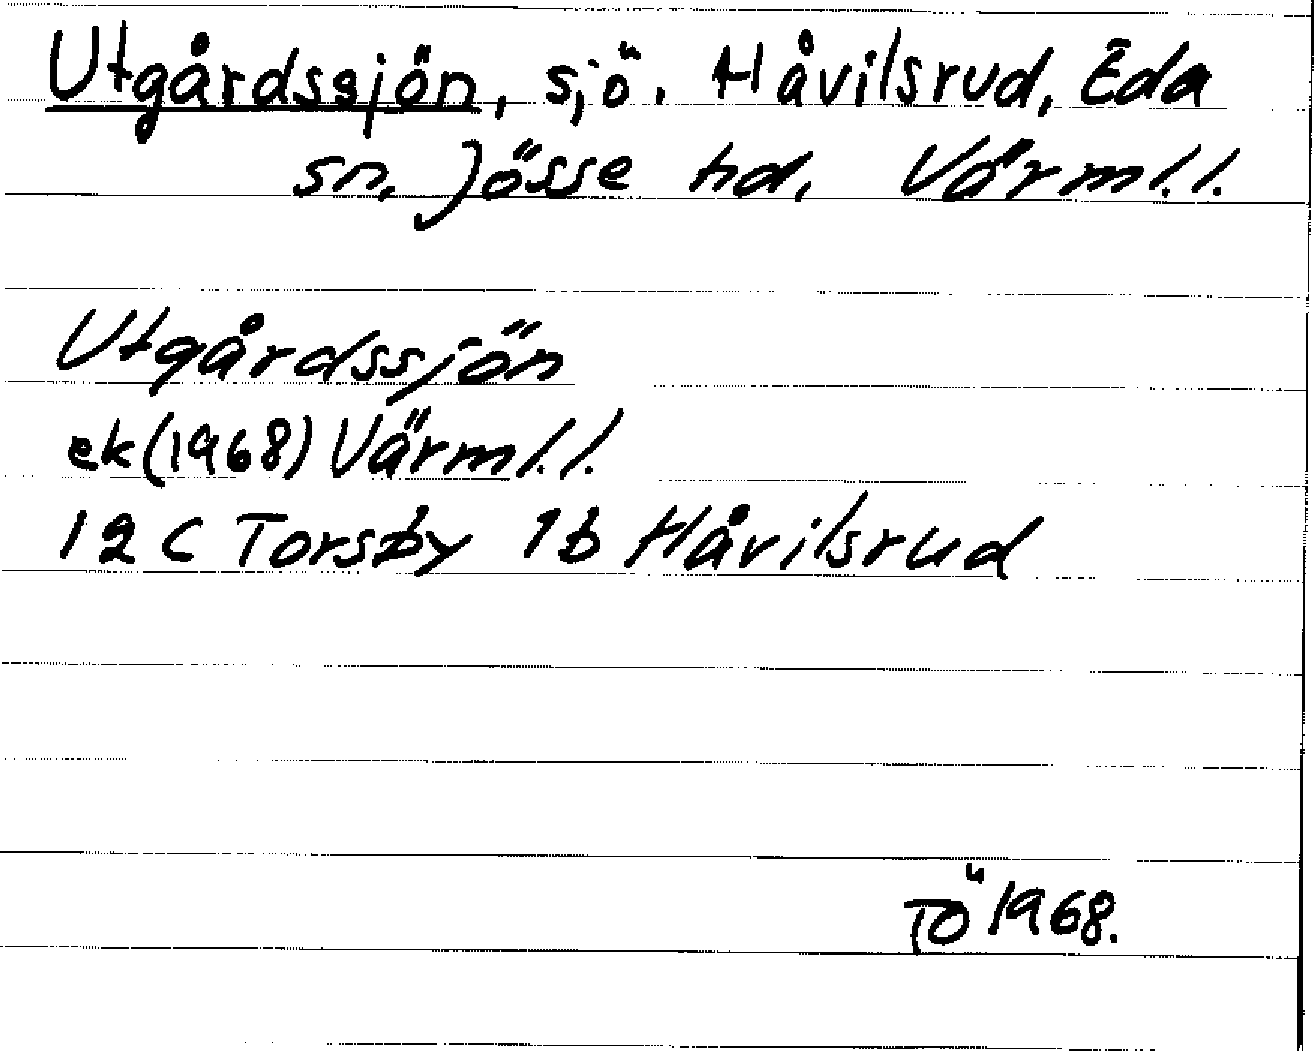 Utgårdssjön, sjö. Håvilsrud, Eda
sn. Jösse hd. Värml.l.
Utgårdssjön
ek(1968) Värml.l.
12 C Torsby 1b Håvilsrud
TÖ 1968.